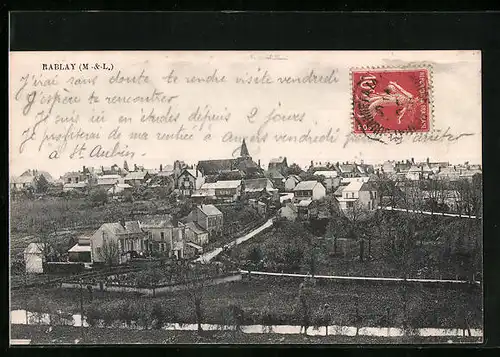 RABLAY (M-&-L.)
J'irai sans doute te rendre visite vendredi
J'espère te rencontrer
Je suis ici en études depuis 2 jours
Je profiterai de ma rentrée à vendredi pour m'arrêter
à St. Aubin
10